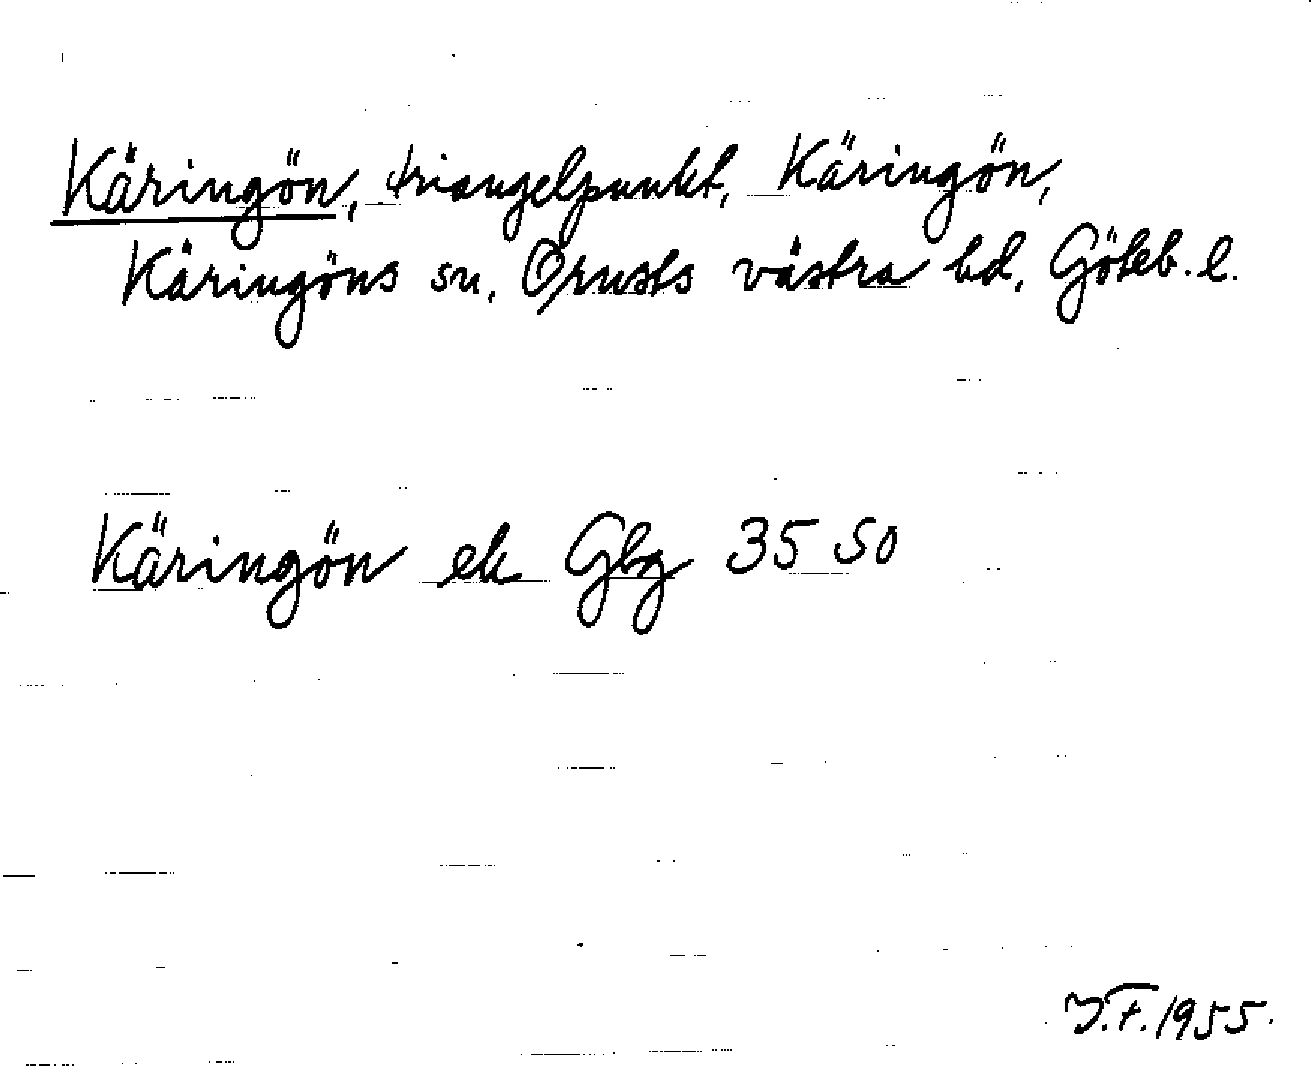 Käringön, triangelpunkt, Käringön,
Käringöns sn, Orusts västra hd, Göteb. l.
Käringön ek Gbg 35 50
J.F. 1955.